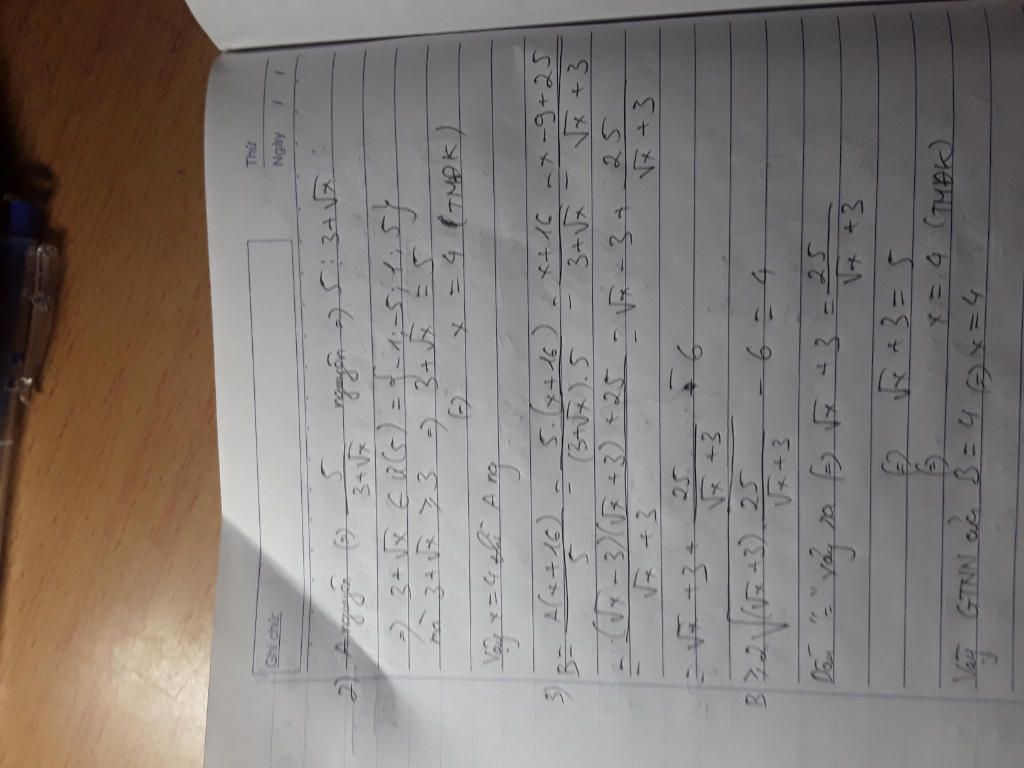 Ghi chú
Thứ
Ngày / /
2) A nguyên (=) 5/(3+√x) nguyên =) 5 ⋮ 3+√x
=) 3+√x ∈ Ư(5) = {-1; -5; 1; 5}
mà 3+√x ≥ 3 =) 3+√x = 5
(=) x = 4 (TMĐK)
Vậy x = 4 thì A ng
3) B = A(x+16)/5 = 5.(x+16)/((3+√x).5) = x+16/(3+√x) = x-9+25/(√x+3)
= (√x-3)(√x+3)+25/(√x+3) = √x-3+25/(√x+3)
= √x+3+25/(√x+3) - 6
B ≥ 2√((√x+3) 25/(√x+3)) - 6 = 4
Dấu "=" xảy ra (=) √x+3 = 25/(√x+3)
(=) √x+3 = 5
(=) x = 4 (TMĐK)
Vậy GTNN của B = 4 (=) x = 4